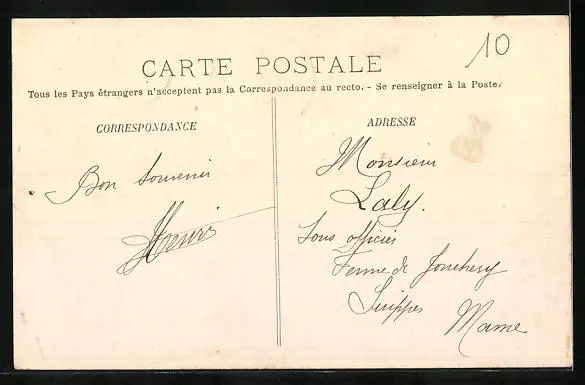 10
CARTE POSTALE
Tous les Pays étrangers n'acceptent pas la Correspondance au recto. - Se renseigner à la Poste.
CORRESPONDANCE
Bon Souvenir
Henri
ADRESSE
Monsieur
Laly.
Sous officier
Ferme de Jonchery
Suippes
Marne